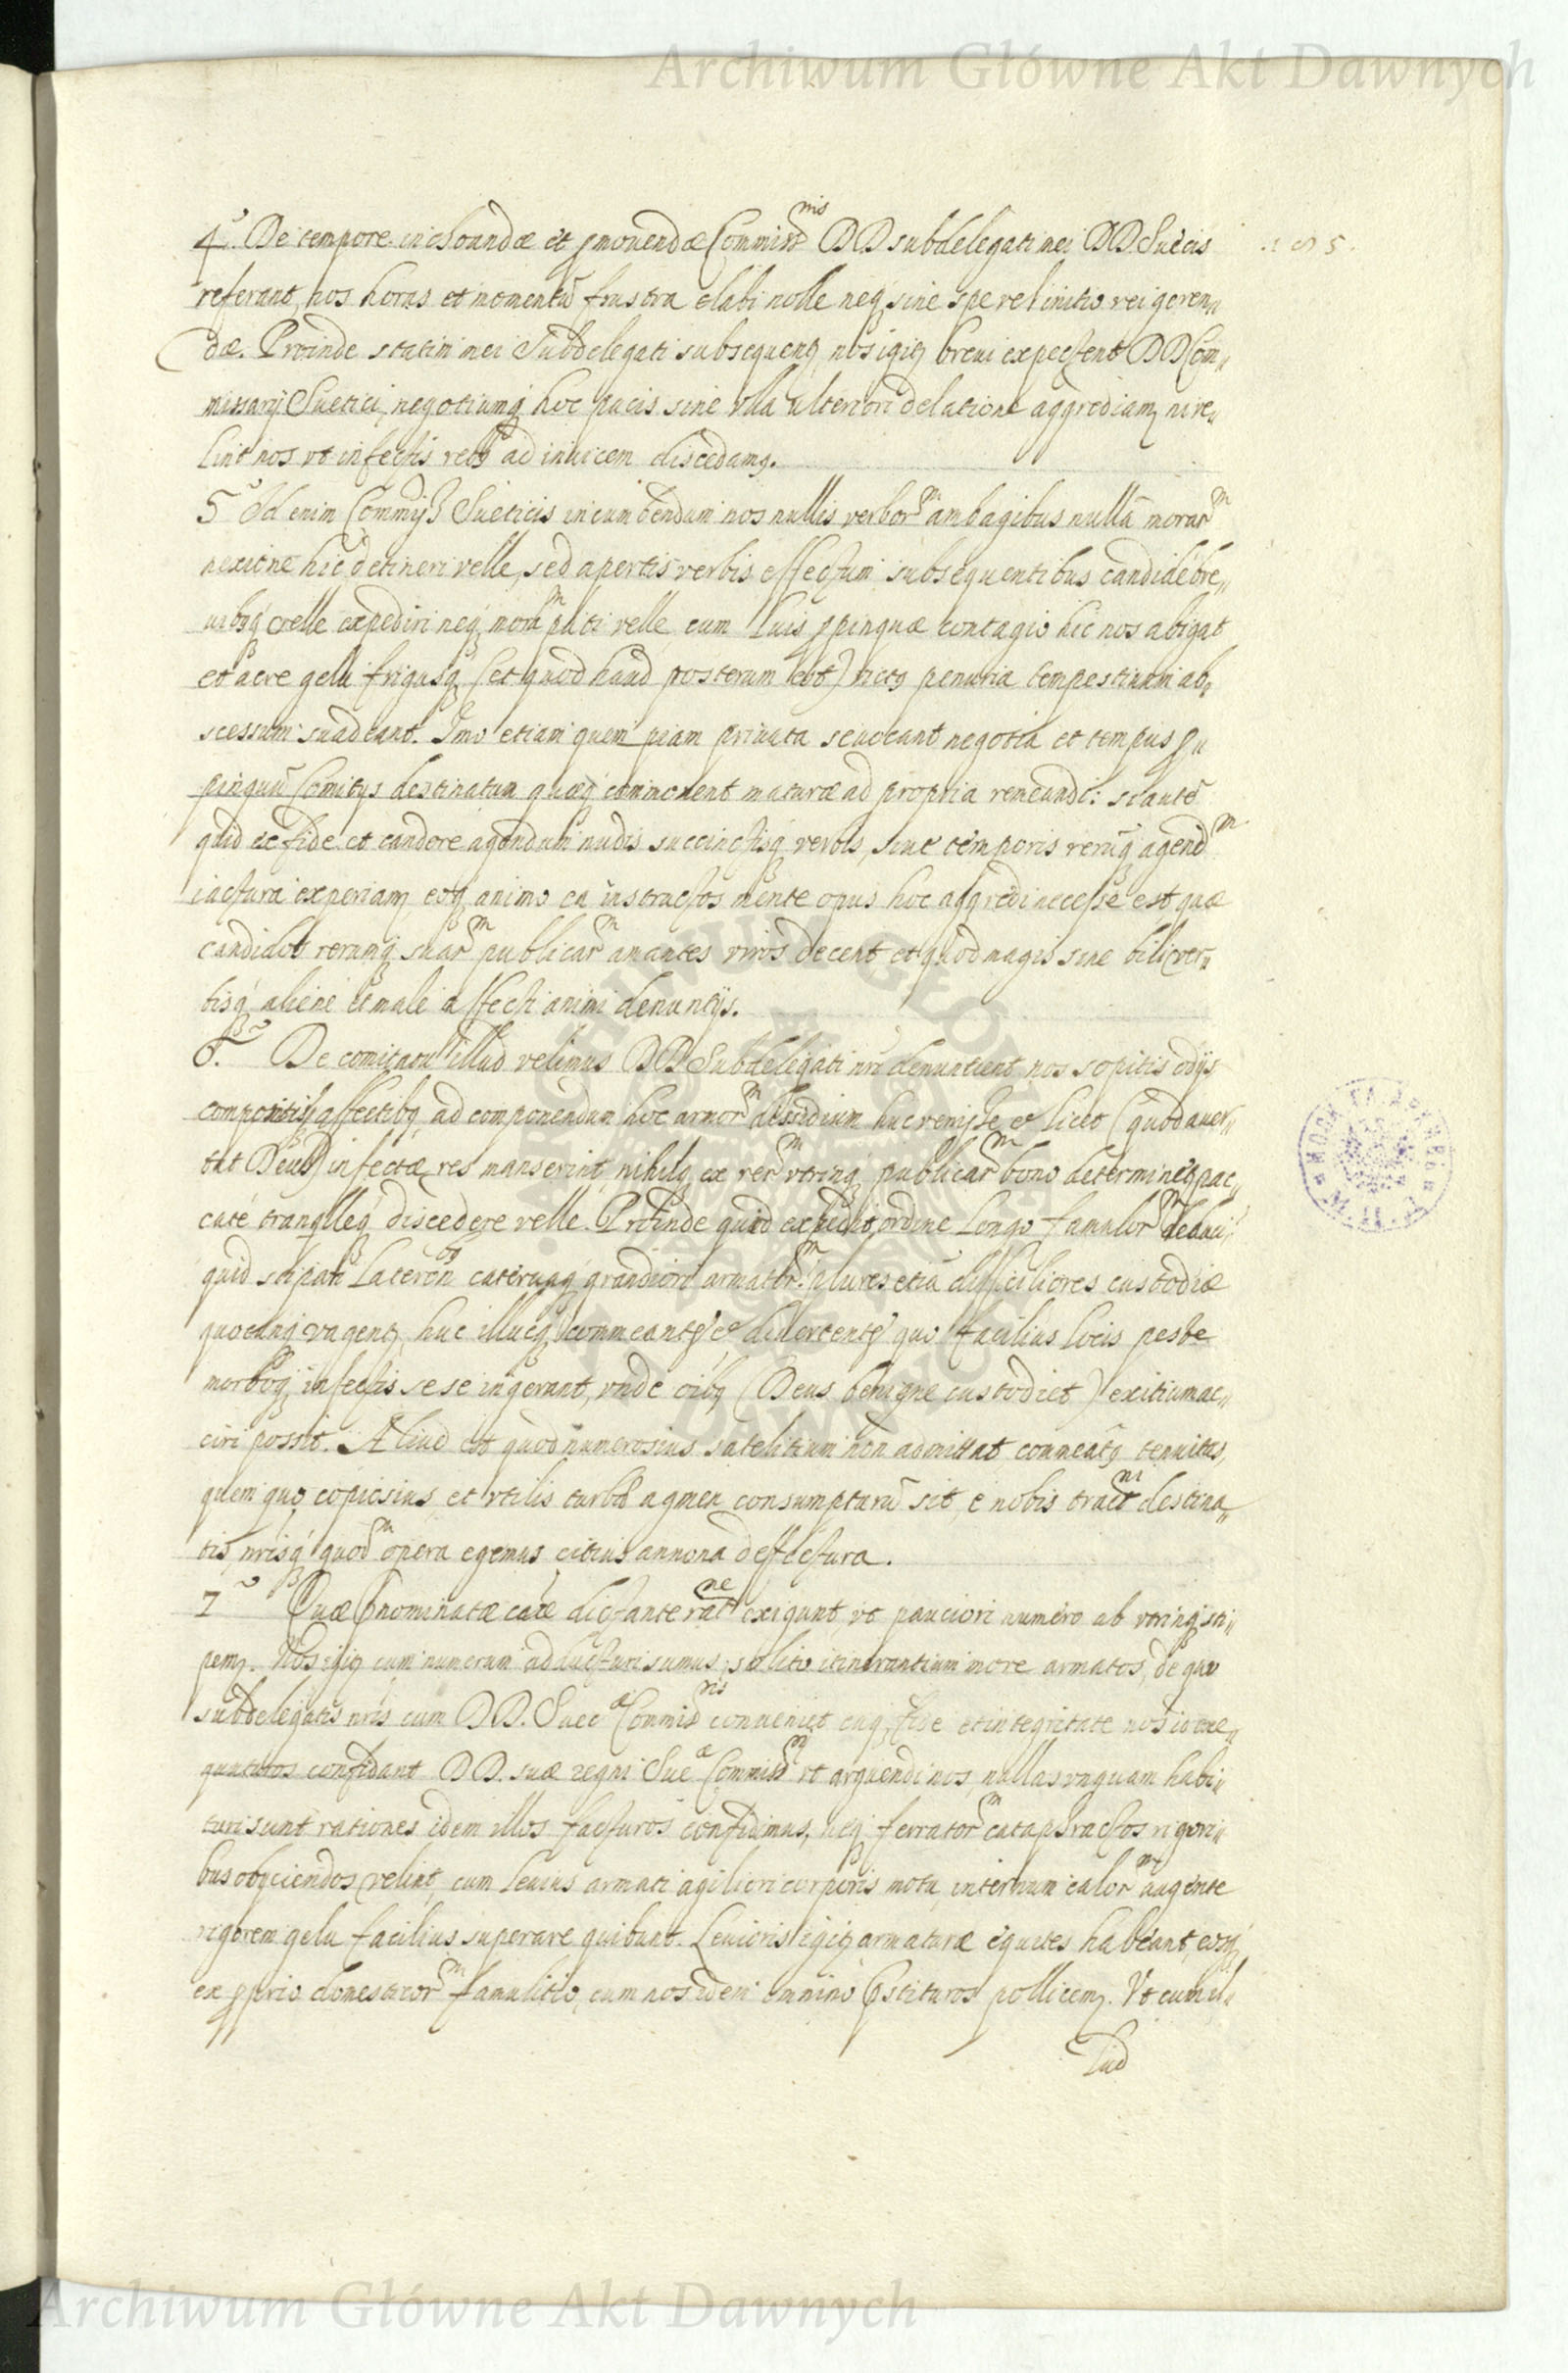 Archiwum Główne Akt Dawnych
4º De tempore inchoandæ et ꝓmouendæ Commissnis DD subdelegati nri DD Suecis
referant, nos horas et momentū frustra elabi nolle neq3 sine spe vel initio rei geren„
dæ. Proinde statim nri Subdelegati subsequent, nos igit brevi expectent DD Com„
missarij Suetici, negotiumq3 hoc pacis sine vlla ulteriori delatione aggrediam, ni ve„
lint nos vt infectis reb9 ad inuicem discedam9.
5º Id enim Commijs Sueticis incumbendum nos nullis verborm ambagibus nullā morarm
nexione hic detineri velle, sed apertis verbis effectum subsequentibus candide bre„
uibq3 velle expediri neq3 moram pati velle cum luis ꝓpinquæ contagio hic nos abigat
et acre gelu frigusq3 (et quod haud posterum est) vict9 penuria tempestiuum ab„
scessum suadeant. Imo etiam quempiam priuata seuocant negotia et tempus ꝓ
pinquū Comitijs destinatum quæq3 commonent maturæ ad propria remeandi: si autē
quid ex fide et candore agendum nudis succinctisq3 verbis, sine temporis rerūq3 agendm
iactura experiam, eoq3 animo ea instructos mente opus hoc aggredi necesse est quæ
candidos rerumq3 suarm publicarm amantes viros decent et quod magis sine bili ver„
bisq3 alieni et male affecti animi denuntijs.
6º. De comitatu illud velimus DD Subdelegati nri denuntient, nos sopitis odijs
compositisq3 affectibq3 ad componendum hoc armorm dissidium huc venisse et licet (quod auer„
tat Deus) infectæ res manserint, nihilq3 ex rerm vtrinq3 publicarm bono determinet, pac„
cate tranqlleq3 discedere velle. Proinde quid expedit, ordine longo famulorm deduci
quid stipati Lateronbs cateruaq3 grandiori armatorm: plures etiā difficiliores custodiæ
quocunq3 vagent, huc illucq3 commeantes et diuertentes quo facilius locis peste
morboq3 infectis sese ingerant, vnde oībq3 (Deus benigne custodiet) exitium ac„
ciri possit. Aliud est quod numerosius satelitium non admittat commeat9 tenuitas,
quem quo copiosius et vtilis turbæ agmen consumpturū sit, e nobis tractm destina„
tis, nrisq3 quorm opera egemus citius annona deffectura.
7º Quæ pnominatæ caæ dictante ratne exigunt, vt pauciori numero ab vtrinq3 sti„
pem. Nos igit cum numerum adducturi sumus, solito itinerantium more armatos, de quo
subdelegatis nris cum DD. Sueca Commisris conueniet eaq3 fide et integritate nos id exe„
quuturos confidant DD. suæ regni Sueæ Commissrij vt arguendi nos, nullas vnquam habi„
turi sunt rationes idem illos facturos confidimus, neq3 ferratorm cataphractos rigori„
bus obijciendos velint, cum leuius armati agiliori corporis motu, internum calorm augente
rigorem gelu facilius superare quibunt. Leuioris igit armaturæ equites habeant, eosq3
ex ꝓprio domesticorm famulitio, cum nos idem omnino pstituros pollicem. Vt cum il„
lud
Archiwum Główne Akt Dawnych